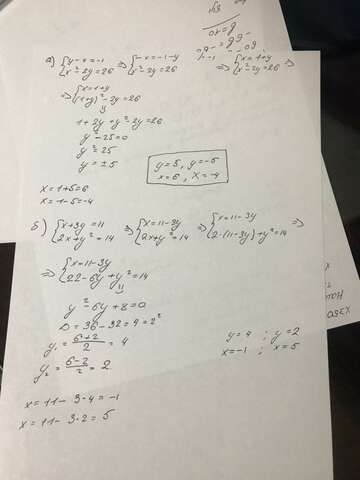 а) {y-x=-1 {x²-2y=26 ⇒ {-x=-1-y {x²-2y=26 ⇒ {x=1+y {x²-2y=26 ⇒
⇒ {x=1+y {(1+y)²-2y=26
1+2y+y²-2y=26
y²-25=0
y²=25
y=±5
y=5, y=-5
x=6, x=-4
x=1+5=6
x=1-5=-4
б) {x+3y=11 {2x+y²=14 ⇒ {x=11-3y {2x+y²=14 ⇒ {x=11-3y {2·(11-3y)+y²=14 ⇒
⇒ {x=11-3y {22-6y+y²=14
y²-6y+8=0
D=36-32=4=2²
y₁=(6+2)/2=4
y₂=(6-2)/2=2
y=4; y=2
x=-1; x=5
x=11-3·4=-1
x=11-3·2=5